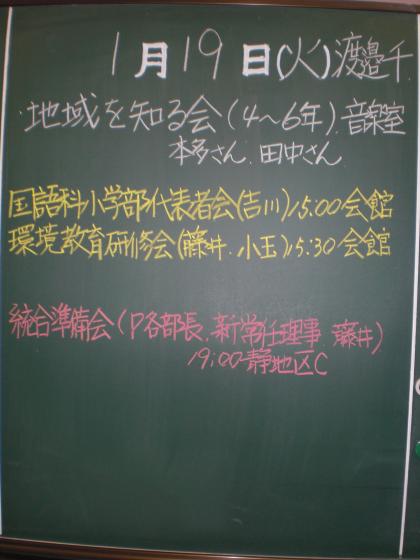 1月19日(火)渡邉千
地域を知る会(4～6年)音楽室
本多さん 田中さん
国語科小学部代表者会(吉川)15:00会館
環境教育研修会(藤井.小玉)15:30会館
統合準備会(P各部長.新常任理事 藤井)
19:00 静地区C